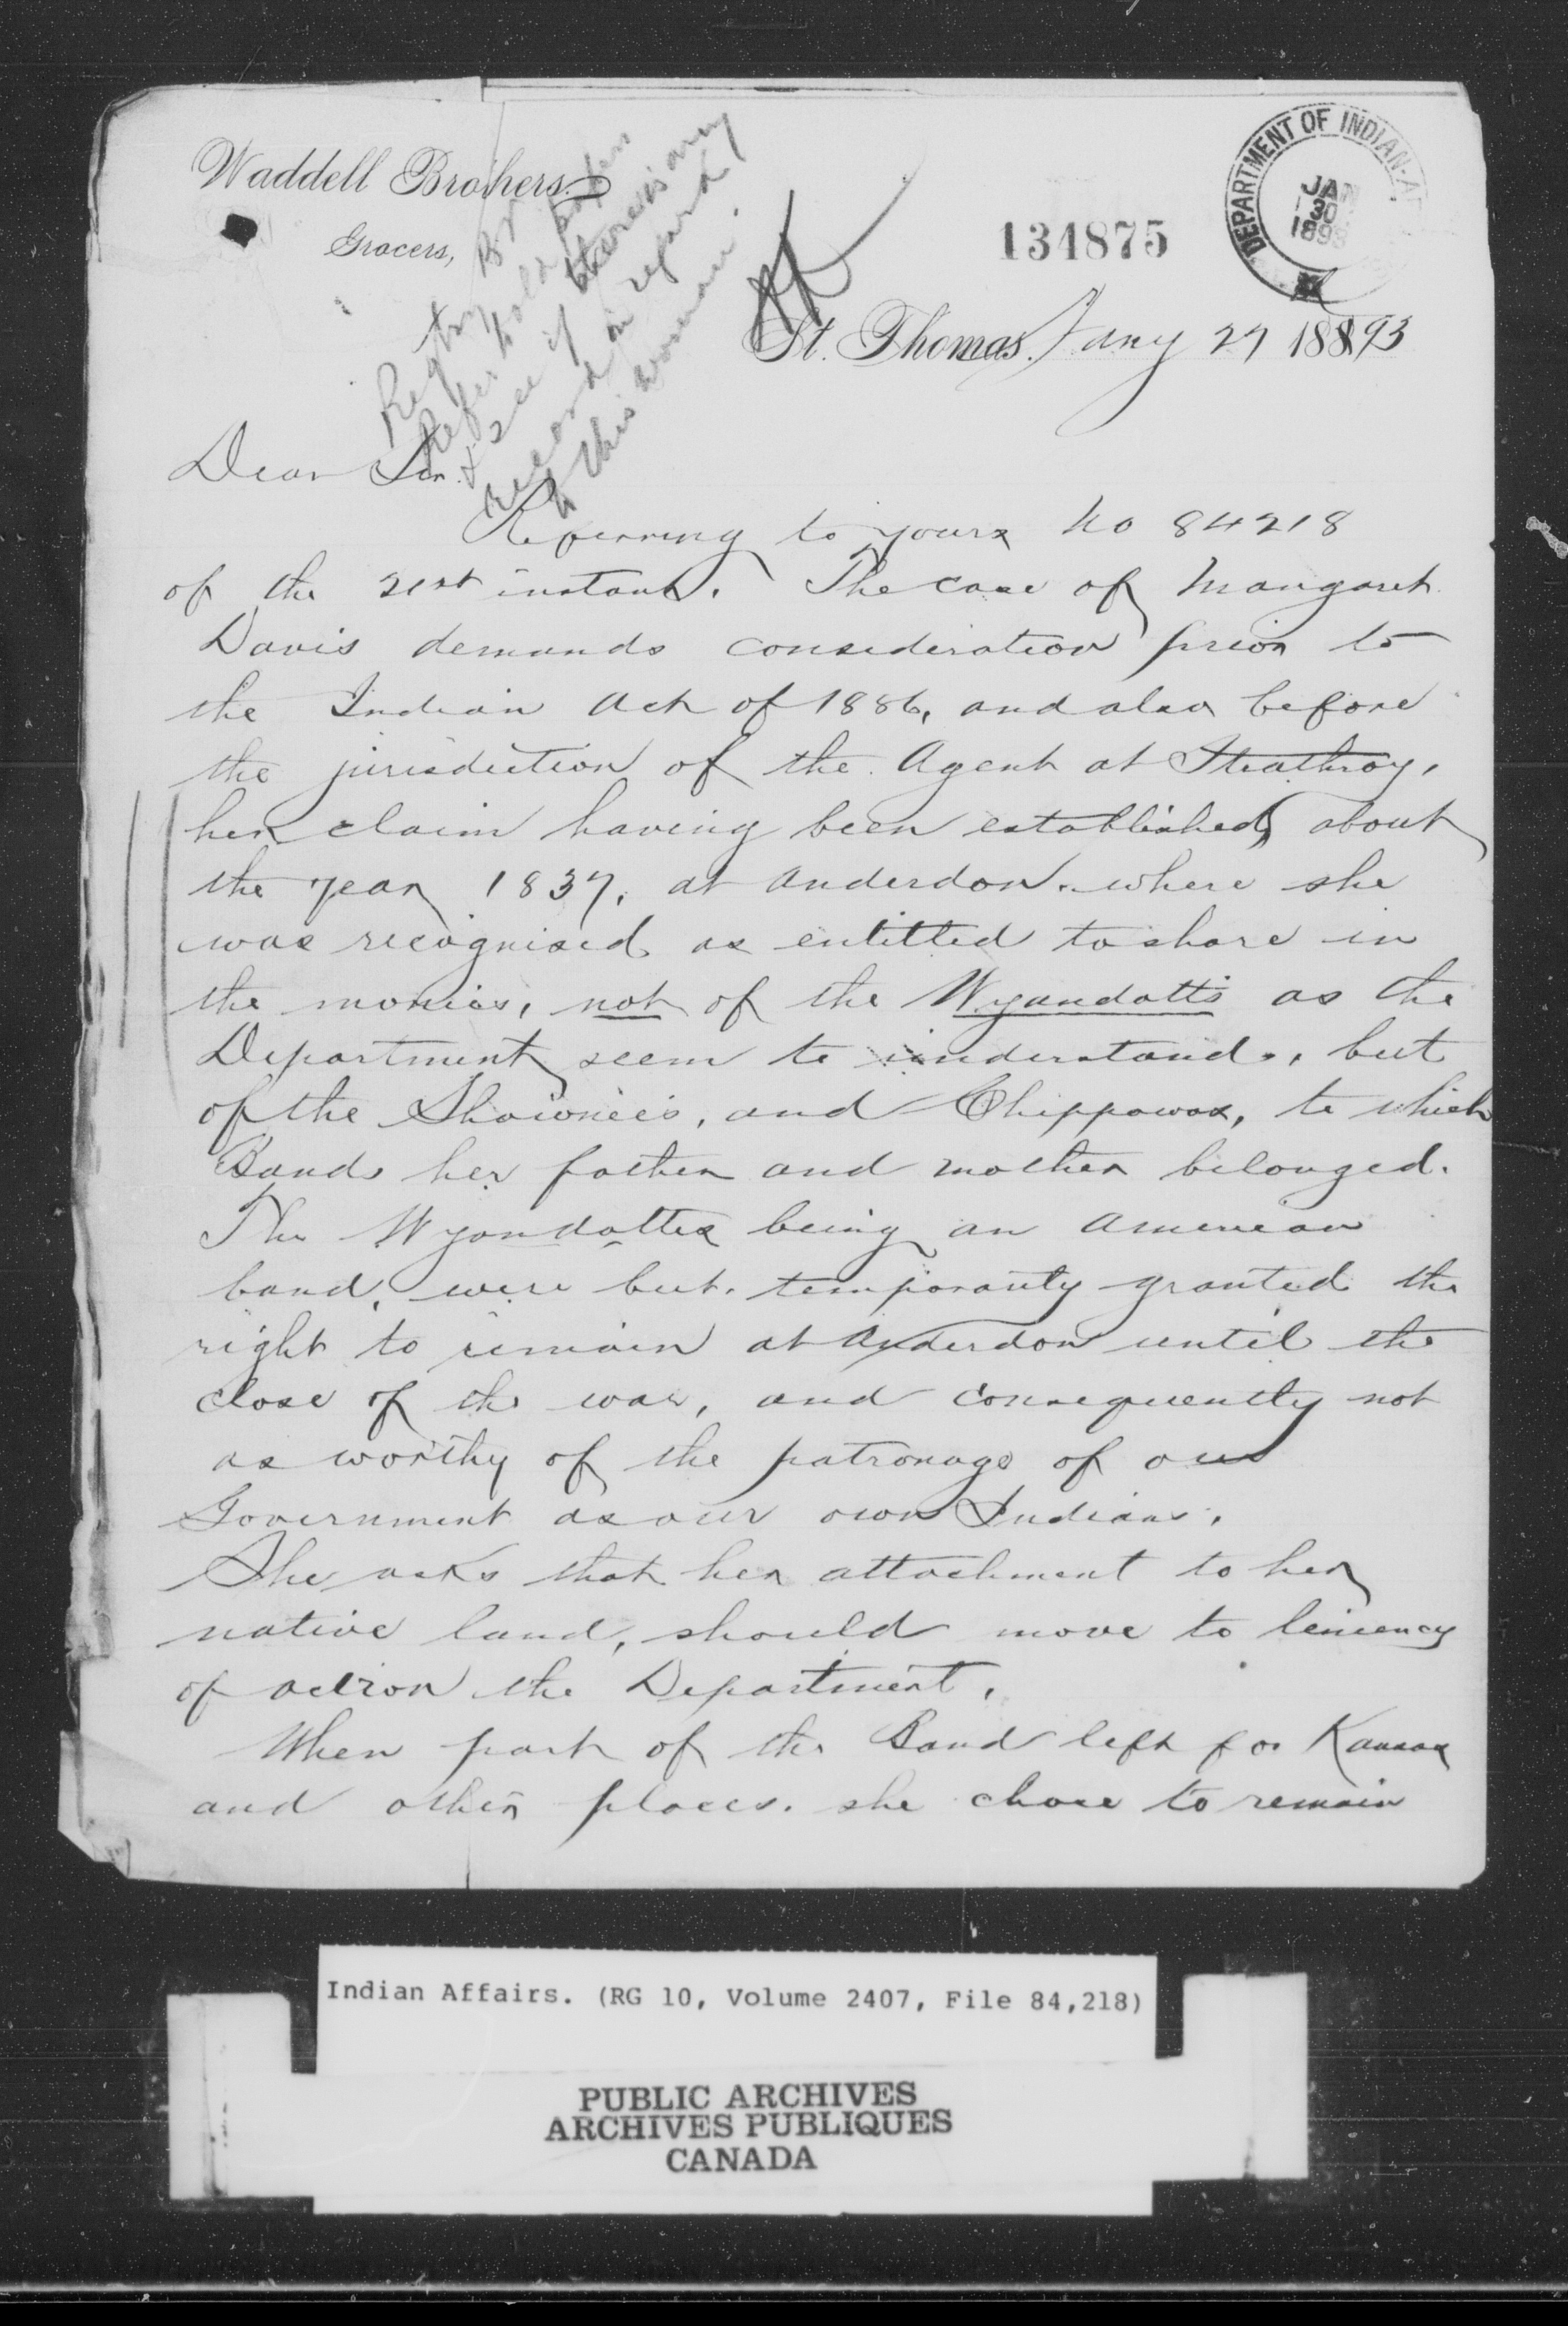 Waddell Brothers
Grocers,
Regtry Br
Refer to old papers
& see if there is any
record in regard
to this woman.
134875
DEPARTMENT OF INDIAN A
JAN
30
1893
St. Thomas, Jany 27 1893
Dear Sir.
Referring to yours No 84218
of the 21st instant. The case of Margaret
Davis demands consideration prior to
the Indian Act of 1886, and also before
the jurisdiction of the Agent at Strathroy,
her claim having been established about
the year 1837, at Anderdon. where she
was recognised as entitled to share in
the monies, not of the Wyandotts as the
Department seem to understand, but
of the Shawnee's, and Chippawas, to which
Bands her father and mother belonged.
The Wyandottes being an American
band, were but temporarily granted the
right to remain at Anderdon until the
close of the war, and consequently not
as worthy of the patronage of our
Government as our own Indians.
She asks that her attachment to her
native land, should move to leniency
of action the Department.
When part of the Band left for Kansas
and other places. she chose to remain
Indian Affairs. (RG 10, Volume 2407, File 84,218)
PUBLIC ARCHIVES
ARCHIVES PUBLIQUES
CANADA